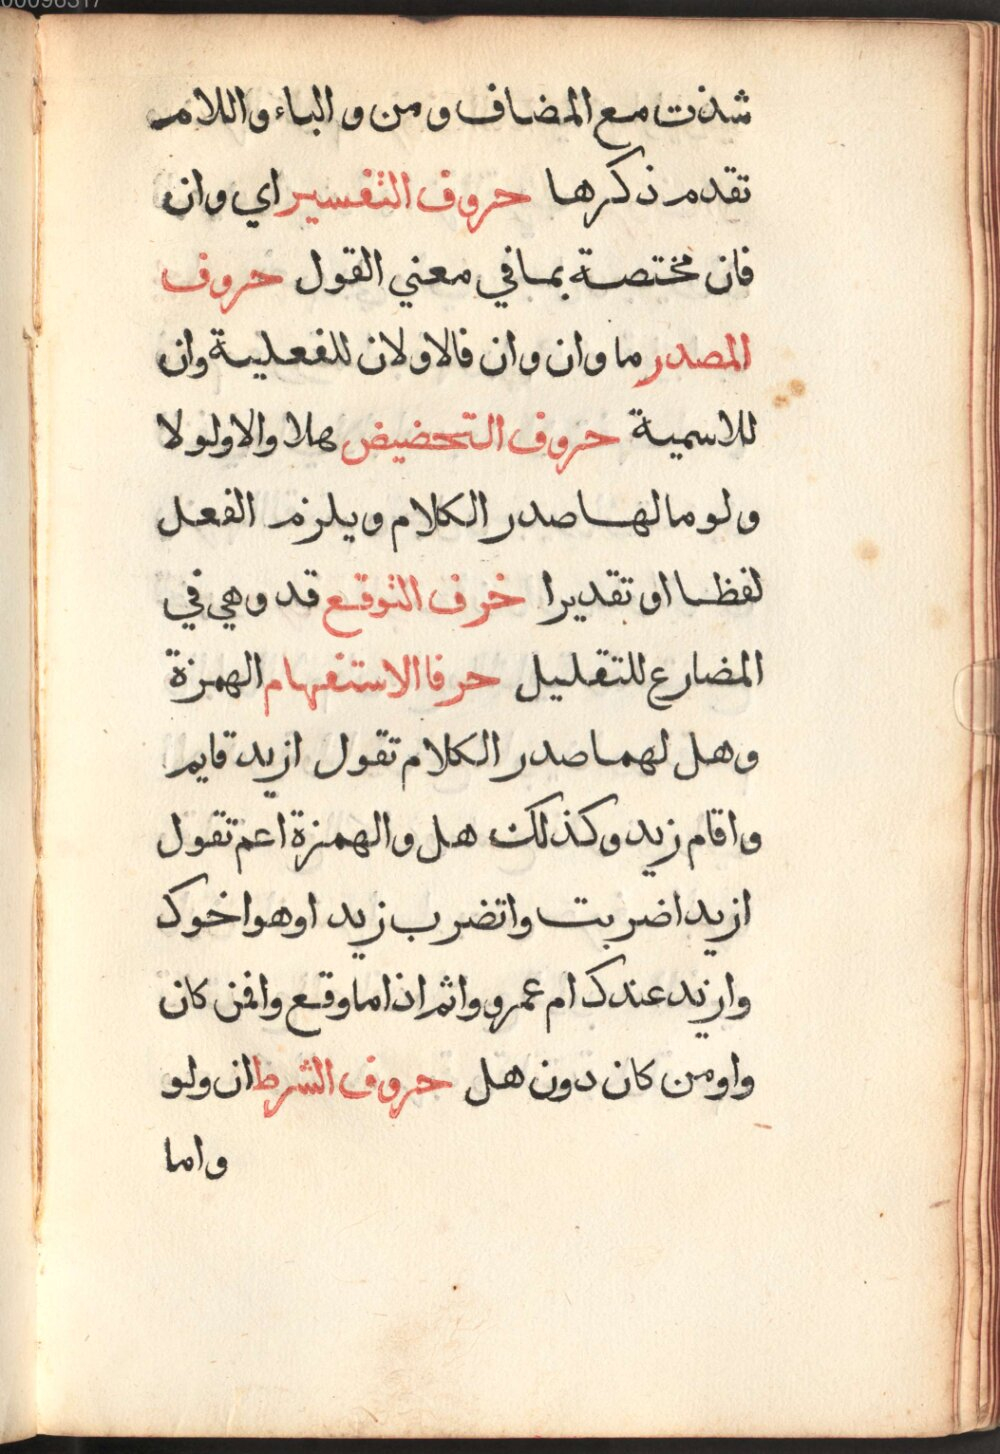 شذت مع المضاف و من و الباء و اللام
تقدم ذكرها حروف التفسير اي و ان
فان مختصة بما في معني القول حروف
المصدر ما و ان و ان فالاولان للفعلية وان
للاسمية حروف التحضيض هلا والا ولولا
ولوما لها صدر الكلام ويلزم الفعل
لفظا او تقديرا حرف التوقع قد وهي في
المضارع للتقليل حرفا الاستفهام الهمزة
وهل لهما صدر الكلام تقول ازيد قايم
واقام زيد وكذلك هل والهمزة اعم تقول
ازيدا ضربت واتضرب زيدا وهو اخوك
وازيد عندك ام عمرو واثم اذا ما وقع وافمن كان
واومن كان دون هل حروف الشرط ان ولو
واما